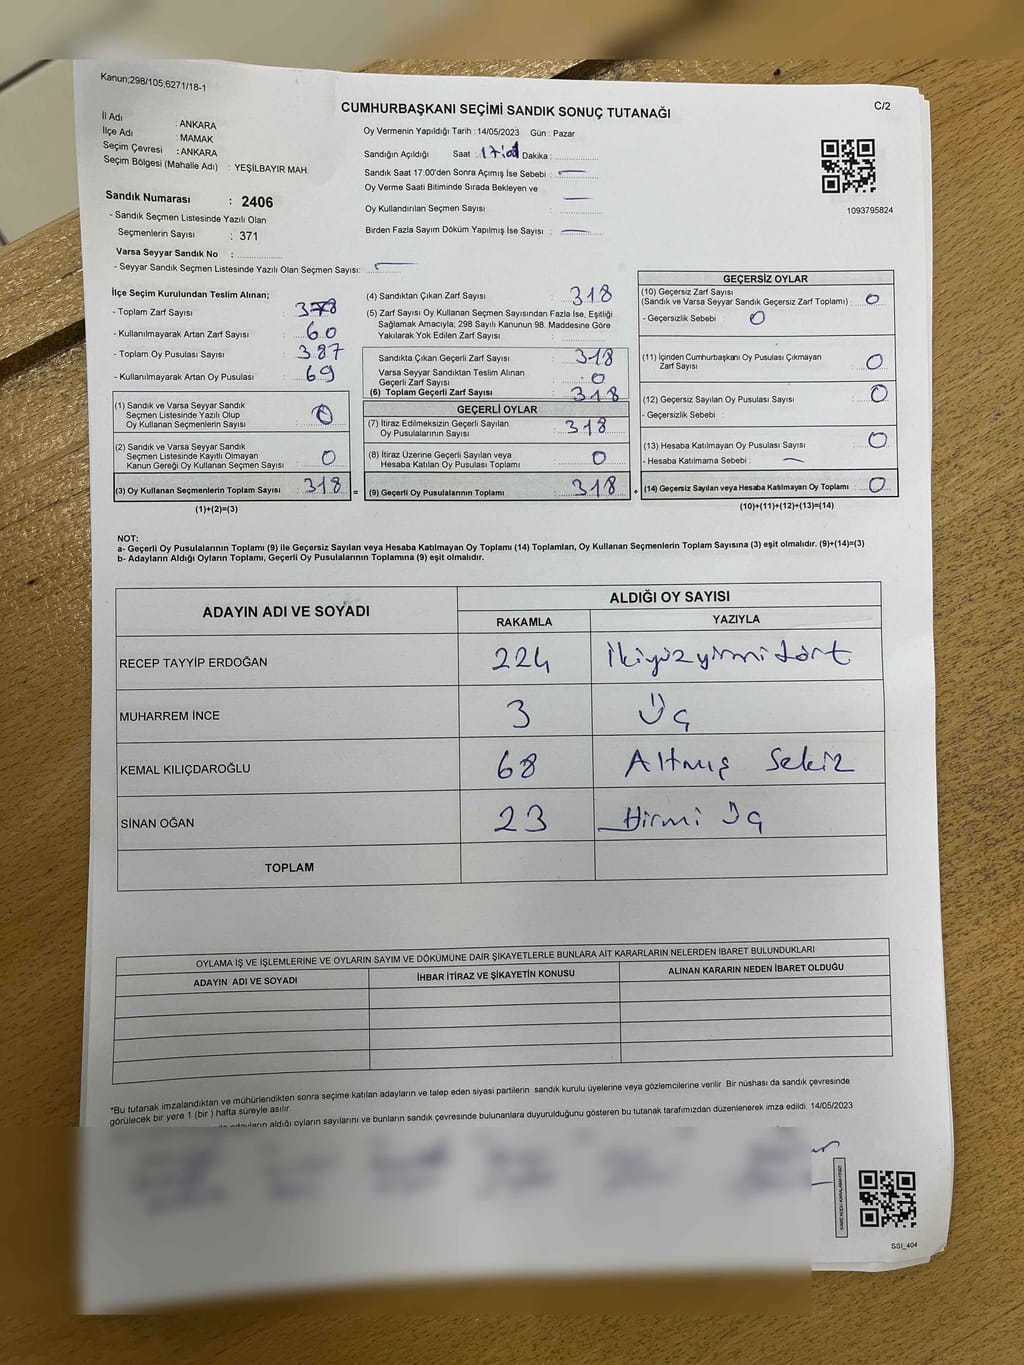 Kanun;298/105,6271/18-1
C/2
CUMHURBAŞKANI SEÇİMİ SANDIK SONUÇ TUTANAĞI
İl Adı : ANKARA
İlçe Adı : MAMAK
Seçim Çevresi : ANKARA
Seçim Bölgesi (Mahalle Adı) : YEŞİLBAYIR MAH.
Sandık Numarası : 2406
- Sandık Seçmen Listesinde Yazılı Olan
Seçmenlerin Sayısı : 371
Varsa Seyyar Sandık No :
- Seyyar Sandık Seçmen Listesinde Yazılı Olan Seçmen Sayısı: —
Oy Vermenin Yapıldığı Tarih : 14/05/2023 Gün : Pazar
Sandığın Açıldığı Saat : 17:01 Dakika :
Sandık Saat 17:00'den Sonra Açımış İse Sebebi : —
Oy Verme Saati Bitiminde Sırada Bekleyen ve —
Oy Kullandırılan Seçmen Sayısı :
Birden Fazla Sayım Döküm Yapılmış İse Sayısı : —
1093795824
İlçe Seçim Kurulundan Teslim Alınan;
- Toplam Zarf Sayısı : 378
- Kullanılmayarak Artan Zarf Sayısı : 60
- Toplam Oy Pusulası Sayısı : 387
- Kullanılmayarak Artan Oy Pusulası : 69
(1) Sandık ve Varsa Seyyar Sandık
Seçmen Listesinde Yazılı Olup
Oy Kullanan Seçmenlerin Sayısı : 0
(2) Sandık ve Varsa Seyyar Sandık
Seçmen Listesinde Kayıtlı Olmayan
Kanun Gereği Oy Kullanan Seçmen Sayısı : 0
(3) Oy Kullanan Seçmenlerin Toplam Sayısı : 318 =
(1)+(2)=(3)
(4) Sandıktan Çıkan Zarf Sayısı : 318
(5) Zarf Sayısı Oy Kullanan Seçmen Sayısından Fazla İse, Eşitliği
Sağlamak Amacıyla; 298 Sayılı Kanunun 98. Maddesine Göre
Yakılarak Yok Edilen Zarf Sayısı :
Sandıkta Çıkan Geçerli Zarf Sayısı : 318
Varsa Seyyar Sandıktan Teslim Alınan
Geçerli Zarf Sayısı : 0
(6) Toplam Geçerli Zarf Sayısı : 318
GEÇERLİ OYLAR
(7) İtiraz Edilmeksizin Geçerli Sayılan
Oy Pusulalarının Sayısı : 318
(8) İtiraz Üzerine Geçerli Sayılan veya
Hesaba Katılan Oy Pusulası Toplamı : 0
(9) Geçerli Oy Pusulalarının Toplamı : 318 +
GEÇERSİZ OYLAR
(10) Geçersiz Zarf Sayısı
(Sandık ve Varsa Seyyar Sandık Geçersiz Zarf Toplamı) : 0
- Geçersizlik Sebebi : 0
(11) İçinden Cumhurbaşkanı Oy Pusulası Çıkmayan
Zarf Sayısı : 0
(12) Geçersiz Sayılan Oy Pusulası Sayısı : 0
- Geçersizlik Sebebi :
(13) Hesaba Katılmayan Oy Pusulası Sayısı : 0
- Hesaba Katılmama Sebebi : —
(14) Geçersiz Sayılan veya Hesaba Katılmayan Oy Toplamı : 0
(10)+(11)+(12)+(13)=(14)
NOT:
a- Geçerli Oy Pusulalarının Toplamı (9) ile Geçersiz Sayılan veya Hesaba Katılmayan Oy Toplamı (14) Toplamları, Oy Kullanan Seçmenlerin Toplam Sayısına (3) eşit olmalıdır. (9)+(14)=(3)
b- Adayların Aldığı Oyların Toplamı, Geçerli Oy Pusulalarının Toplamına (9) eşit olmalıdır.
ADAYIN ADI VE SOYADI ALDIĞI OY SAYISI
RAKAMLA YAZIYLA
RECEP TAYYİP ERDOĞAN 224 İkiyüzyirmidört
MUHARREM İNCE 3 Üç
KEMAL KILIÇDAROĞLU 68 Altmış Sekiz
SİNAN OĞAN 23 Yirmi Üç
TOPLAM
OYLAMA İŞ VE İŞLEMLERİNE VE OYLARIN SAYIM VE DÖKÜMÜNE DAİR ŞİKAYETLERLE BUNLARA AİT KARARLARIN NELERDEN İBARET BULUNDUKLARI
ADAYIN ADI VE SOYADI İHBAR İTİRAZ VE ŞİKAYETİN KONUSU ALINAN KARARIN NEDEN İBARET OLDUĞU
*Bu tutanak imzalandıktan ve mühürlendikten sonra seçime katılan adayların ve talep eden siyasi partilerin sandık kurulu üyelerine veya gözlemcilerine verilir. Bir nüshası da sandık çevresinde
görülecek bir yere 1 (bir ) hafta süreyle asılır.
adayların aldığı oyların sayılarını ve bunların sandık çevresinde bulunanlara duyurulduğunu gösteren bu tutanak tarafımızdan düzenlenerek imza edildi. 14/05/2023
SSI_404